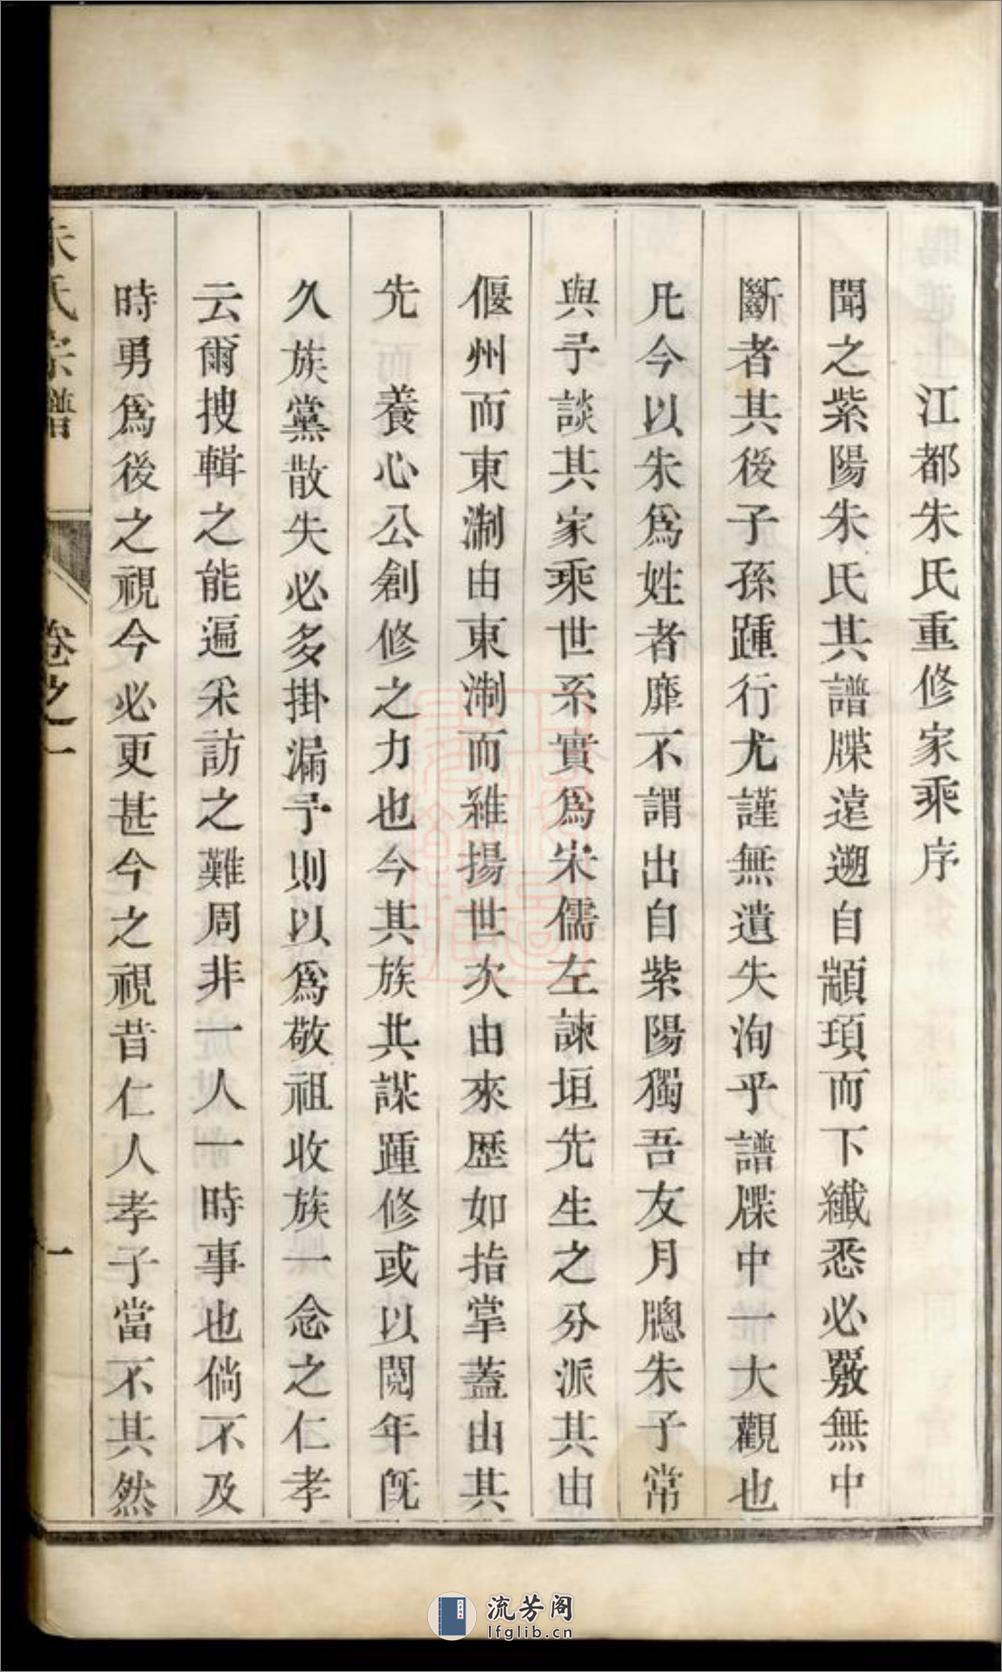 江都朱氏重修家乘序
聞之紫陽朱氏其譜牒遠遡自顓頊而下纖悉必覈無中
斷者其後子孫踵行尤謹無遺失洵乎譜牒中一大觀也
凡今以朱爲姓者靡不謂出自紫陽獨吾友月牕朱子常
與予談其家乘世系實爲宋儒左諫垣先生之分派其由
偃州而東淛由東淛而維揚世次由來歷如指掌蓋由其
先　養心公創修之力也今其族共謀踵修或以閱年旣
久族黨散失必多掛漏予則以爲敬祖收族一念之仁孝
云爾搜輯之能遍采訪之難周非一人一時事也倘不及
時勇爲後之視今必更甚今之視昔仁人孝子當不其然
朱氏宗譜
卷之一
一
流芳阁
lfglib.cn